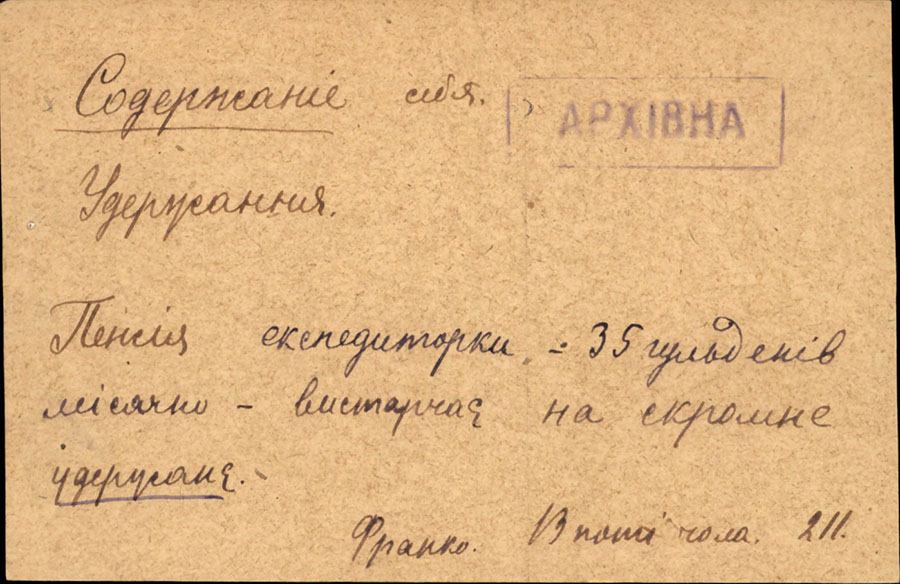 Содержаніе себя. АРХІВНА
Удержання.
Пенсія експедиторки - 35 гульденів
місячно - вистарчає на скромне
удержанє.
Франко. В поті чола. 211.